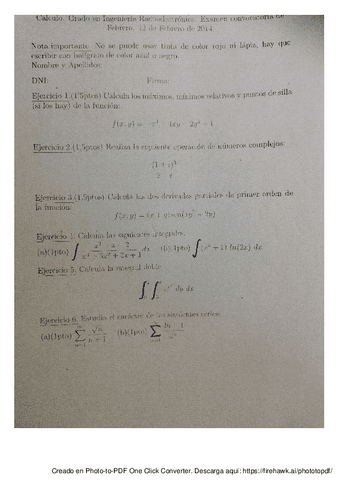 Cálculo. Grado en Ingeniería Radioelectrónica. Examen convocatoria de
Febrero. 12 de Febrero de 2014.
Nota importante: No se puede usar tinta de color rojo ni lápiz, hay que
escribir con bolígrafo de color azul o negro.
Nombre y Apellidos:
DNI: Firma:
Ejercicio 1.(1,5ptos) Calcula los máximos, mínimos relativos y puntos de silla
(si los hay) de la función:
f(x, y) =
Ejercicio 2.(1,5ptos) Realiza la siguiente operación de números complejos:
Ejercicio 3.(1,5ptos) Calcula las dos derivadas parciales de primer orden de
la función:
f(x, y) =
Ejercicio 4. Calcula las siguientes integrales.
(a)(1pto) ∫ dx (b)(1pto) ∫ (x² + 1) ln(2x) dx
Ejercicio 5. Calcula la integral doble
∫ ∫ dy dx
Ejercicio 6. Estudia el carácter de las siguientes series.
(a)(1pto) ∑ √n / n + 1 (b)(1pto) ∑
Creado en Photo-to-PDF One Click Converter. Descarga aquí: https://firehawk.ai/phototopdf/